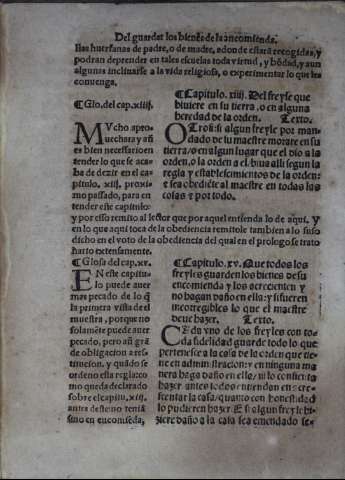 Del guardar los bienes de la encomienda.
llas huerfanas de padre, o de madre, adonde estarã recogidas, y
podran deprender en tales escuelas toda virtud, y bõdad, y aun
algunas inclinarse a la vida religiosa, o experimentar lo que les
convenga.
¶ Glo. del cap. xiiij.
MVcho apro-
uechara y aũ
es bien necessario en
tender lo que se aca-
ba de dezir en el ca-
pitulo. xiij. proxi-
mo passado, para en
tender este capitulo:
¶ Capitulo. xiiij. Del freyle que
biuiere en su tierra, o en alguna
heredad de la orden. Texto.
OTrosi: si algun freyle por man-
dado de su maestre morare en su
tierra o en algun lugar que el dio a la
orden, o la orden a el: biua alli segun la
regla y establescimientos de la orden:
e sea obediēte al maestre en todas las
cosas e por todo.
y por esso remito al lector que por aquel entienda lo de aqui. y
en lo que aqui toca de la obediencia remitole tambien a lo suso
dicho en el voto de la obediencia del qual en el prologo se trato
harto extensamente.
¶ Glosa del cap. xv.
EN este capitu-
lo puede auer
mas pecado de lo q̃
la primera vista del
muestra, porque no
solamẽte puede auer
pecado, pero aũ grã
de obligacion a res-
titucion. y quãdo se
ordeno esta regla: co
mo queda declarado
sobre el capitu. xiij.
antes deste no teniã
sino en encomiẽda,
¶ Capitulo. xv. Que todos los
freyles guarden los bienes de su
encomienda y los acrecienten y
no hagan daño en ella: y si fueren
incorregibles lo que el maestre
deue hazer. Texto.
CAda vno de los freyles con to-
da fidelidad guarde todo lo que
pertenesce a la casa de la orden que tie-
ne en administracion: y en ninguna ma
nera haga daño en ella, ni lo consienta
hazer antes todos entiendan en acre-
centar la casa, quanto con honestidad
lo pudieren hazer. E si algun freyle hi-
ziere daño a la casa sea emendado se-